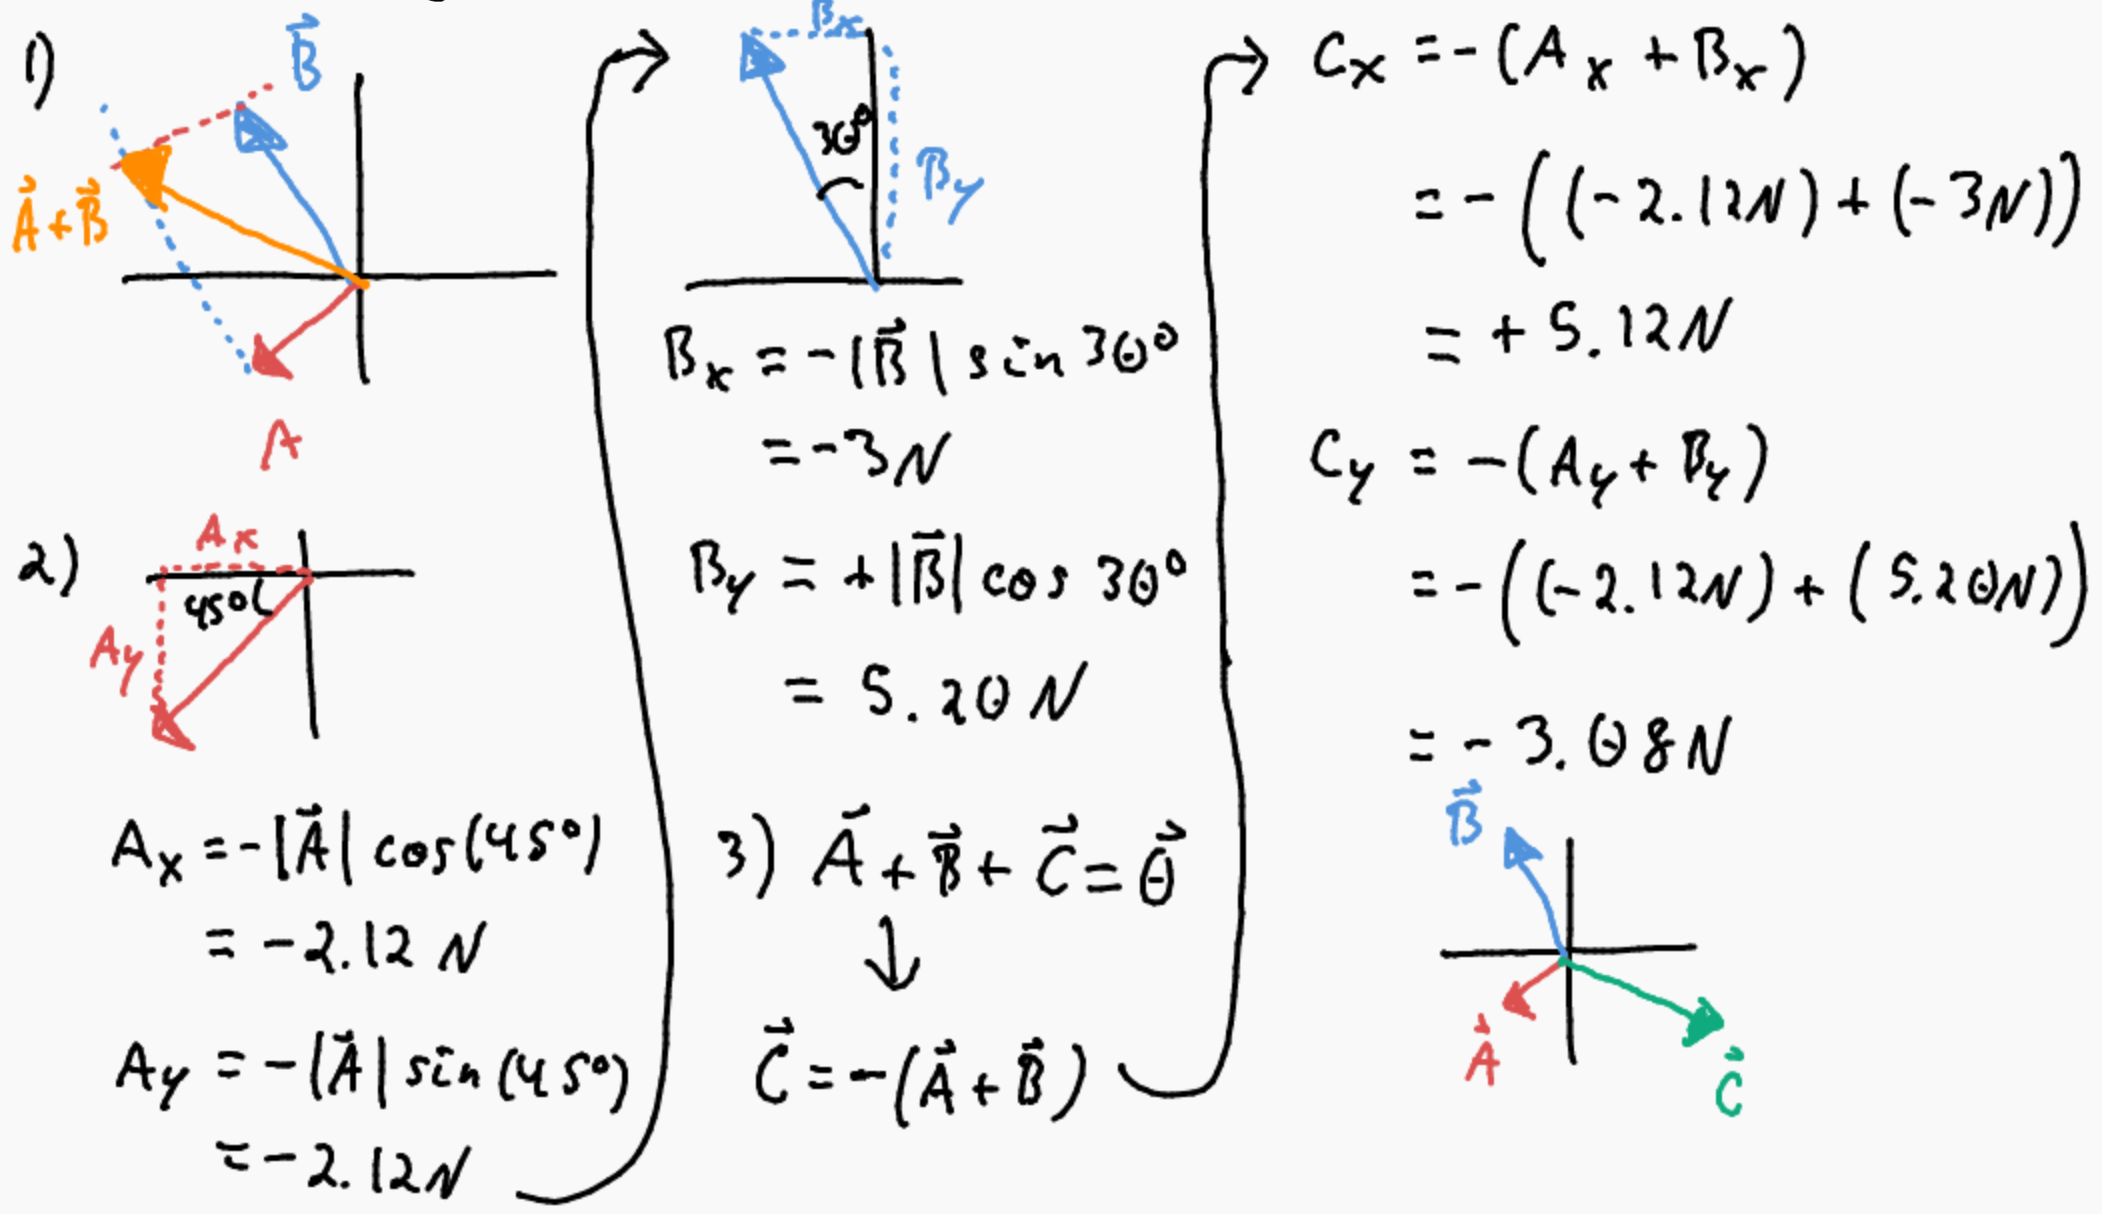 1)
B⃗
A⃗ + B⃗
A
2)
Ax
45°
Ay
Ax = -|A⃗| cos(45°)
= -2.12 N
Ay = -|A⃗| sin(45°)
= -2.12N
Bx
30°
By
Bx = -|B⃗| sin 30°
= -3N
By = +|B⃗| cos 30°
= 5.20 N
3) A⃗ + B⃗ + C⃗ = 0⃗
↓
C⃗ = -(A⃗ + B⃗)
Cx = -(Ax + Bx)
= -((-2.12N) + (-3N))
= +5.12N
Cy = -(Ay + By)
= -((-2.12N) + (5.20N))
= -3.08N
B⃗
A⃗
C⃗